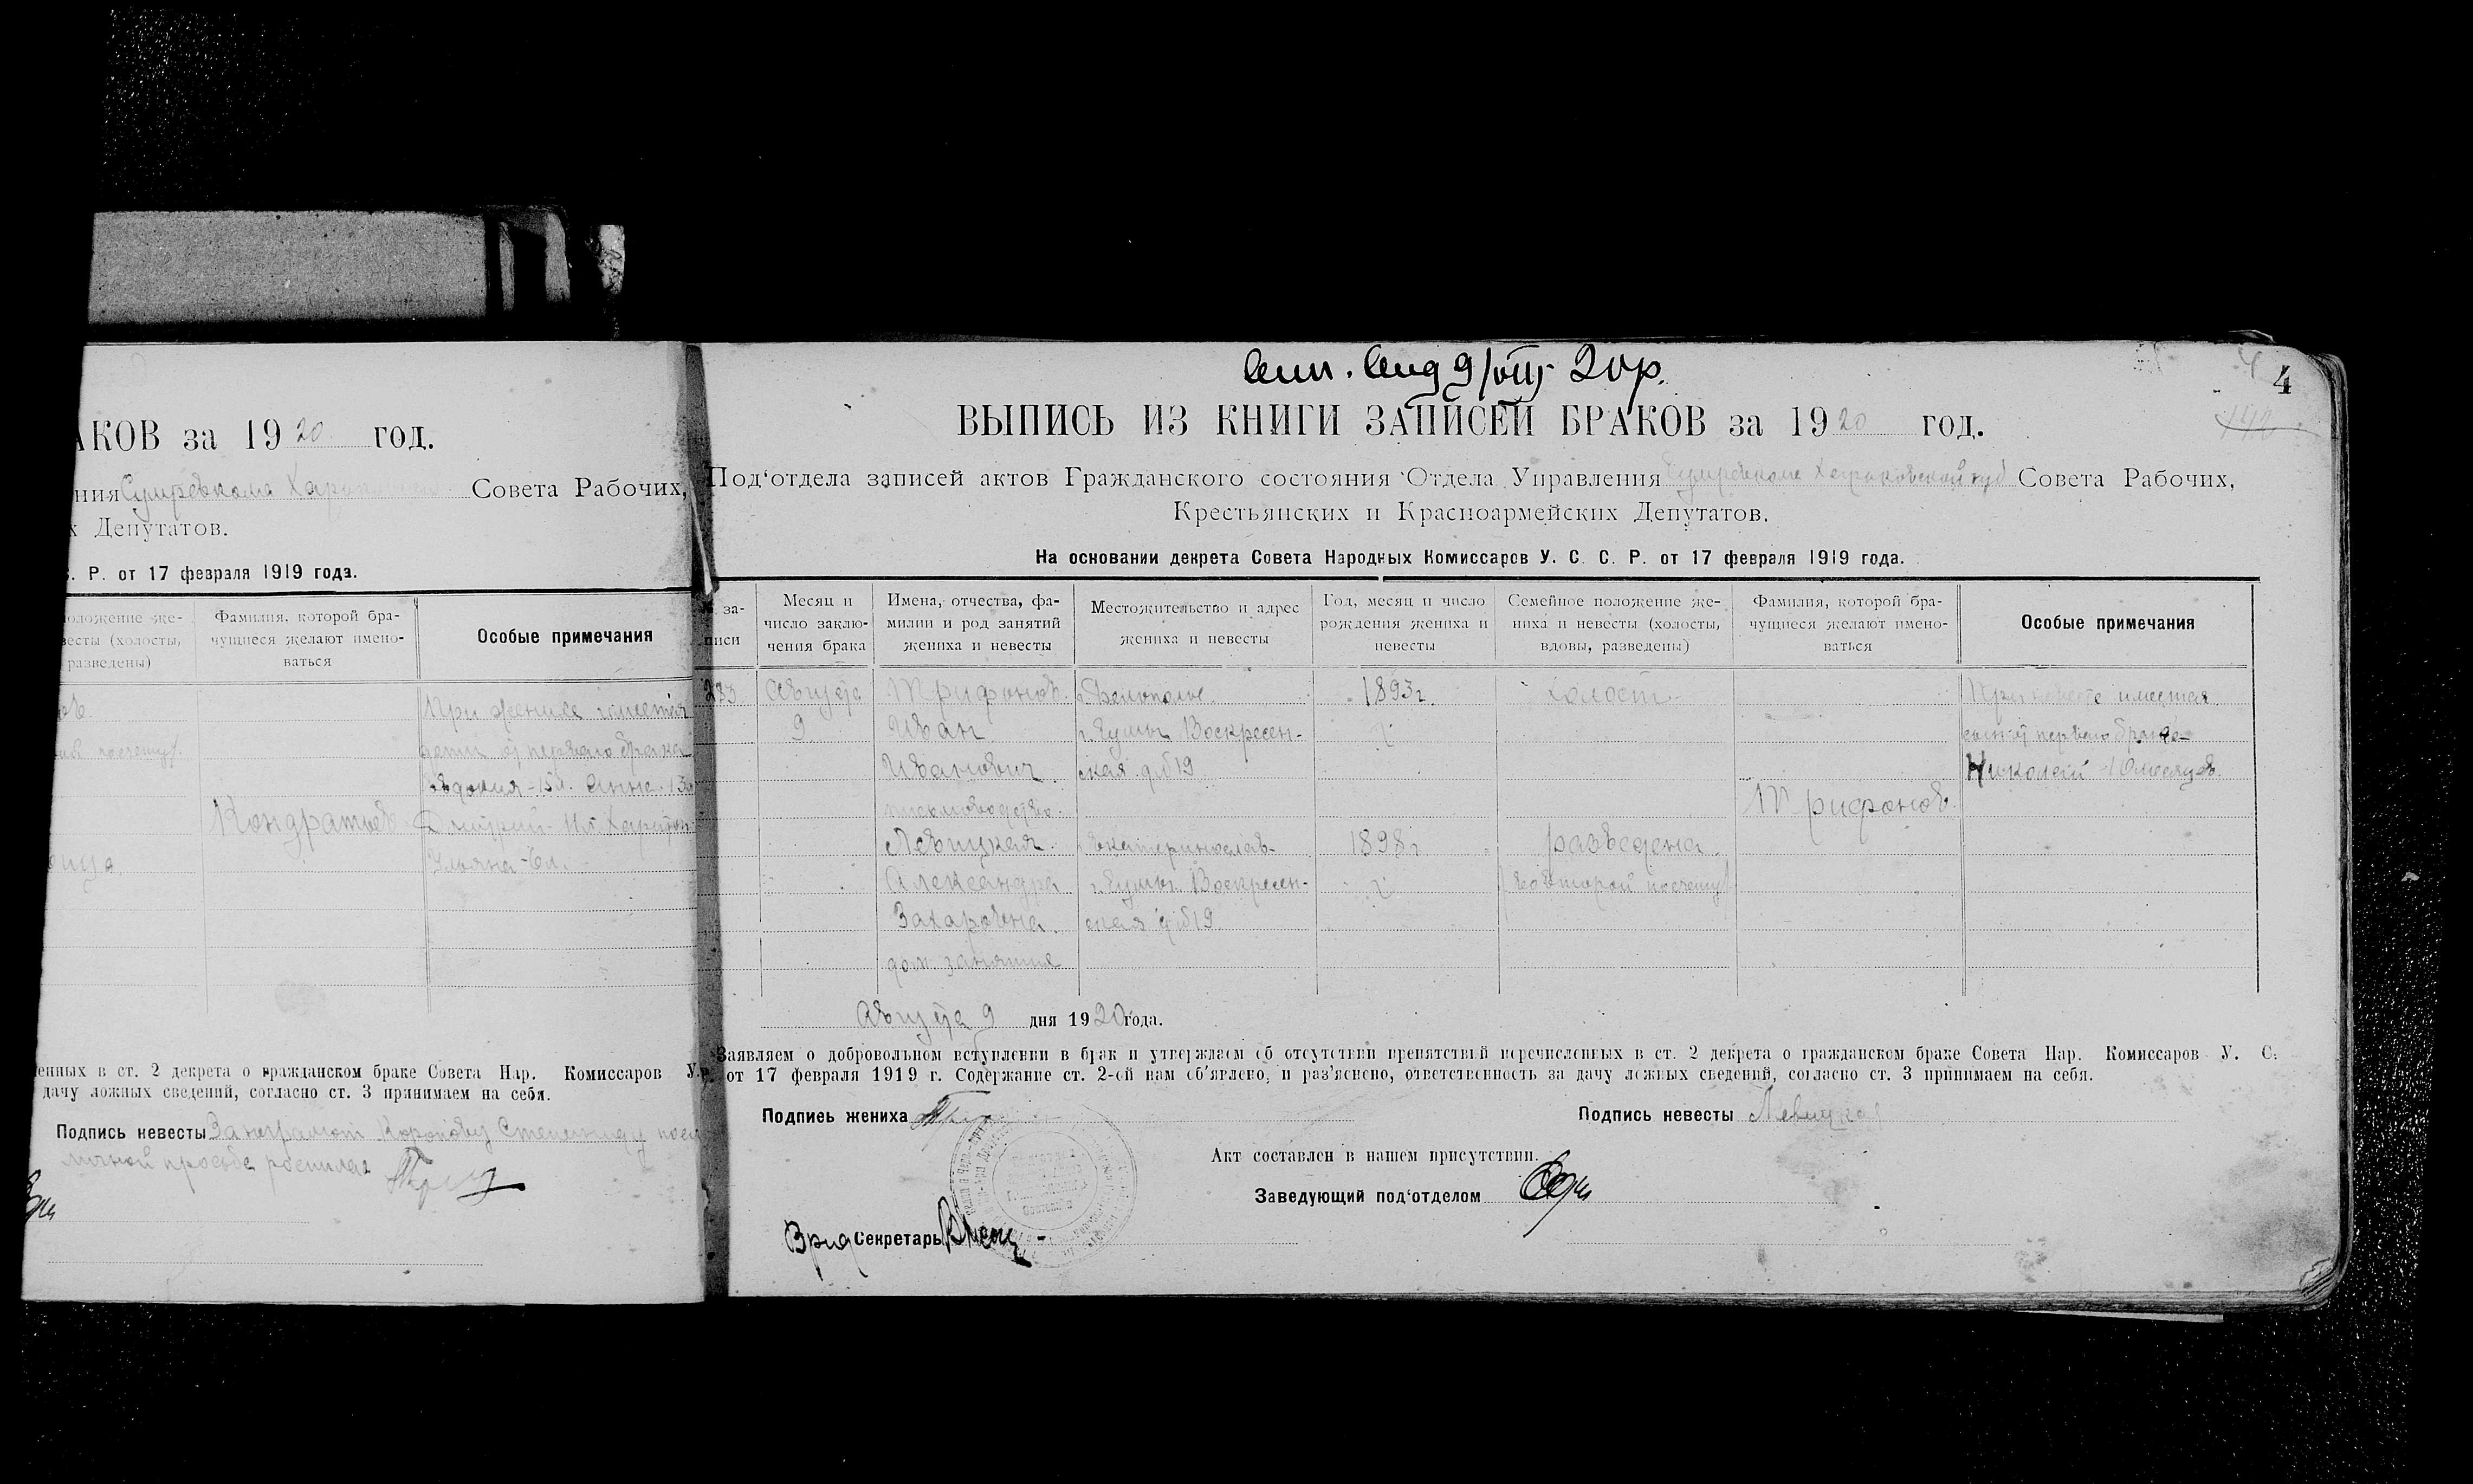 АКОВ за 1920 год.
ния Сумревкома Совета Рабочих,
х Депутатов.
. Р. от 17 февраля 1919 года.
оложение же-
весты (холосты,
разведены)
Фамилия, которой бра-
чущиеся желают имено-
ваться
Особые примечания
При женихе имеются
дети от первого брака
Евдокия - 15 л. Анна - 13
Кондратьев
Ульяна - 6 л.
енных в ст. 2 декрета о гражданском браке Совета Нар. Комиссаров У.
дачу ложных сведений, согласно ст. 3 принимаем на себя.
Подпись невесты За неграмот Степаниду
личной просьбе
4
ВЫПИСЬ ИЗ КНИГИ ЗАПИСЕЙ БРАКОВ за 1920 год.
Под‘отдела записей актов Гражданского состояния Отдела Управления Сумревкома Харьковской губ Совета Рабочих,
Крестьянских и Красноармейских Депутатов.
На основании декрета Совета Народных Комиссаров У. С. С. Р. от 17 февраля 1919 года.
№ за-
писи
Месяц и
число заклю-
чения брака
Имена, отчества, фа-
милии и род занятий
жениха и невесты
Местожительство и адрес
жениха и невесты
Год, месяц и число
рождения жениха и
невесты
Семейное положение же-
ниха и невесты (холосты,
вдовы, разведены)
Фамилия, которой бра-
чущиеся желают имено-
ваться
Особые примечания
273
Августа
9
Трифонов
Иван
Иванович
Левицкая
Александра
Захаровна
дом. занятие
г. Сумы Воскресен-
ская д № 19
Екатеринослав
г. Сумы Воскресен-
ская д № 19
1893 г.
1898 г.
холост
разведена
(во второй по счету)
Трифонов
При невесте имеется
сын от первого брака
Николай - 10 месяцев
Августа 9 дня 1920 года.
Заявляем о добровольном вступлении в брак и утверждаем об отсутствии препятствий перечисленных в ст. 2 декрета о гражданском браке Совета Нар. Комиссаров У. С.
Р. от 17 февраля 1919 г. Содержание ст. 2-ой нам об‘явлено, и раз‘яснено, ответственность за дачу ложных сведений, согласно ст. 3 принимаем на себя.
Подпись жениха
Подпись невесты Левицкая
Акт составлен в нашем присутствии.
Заведующий под‘отделом
Врид Секретарь